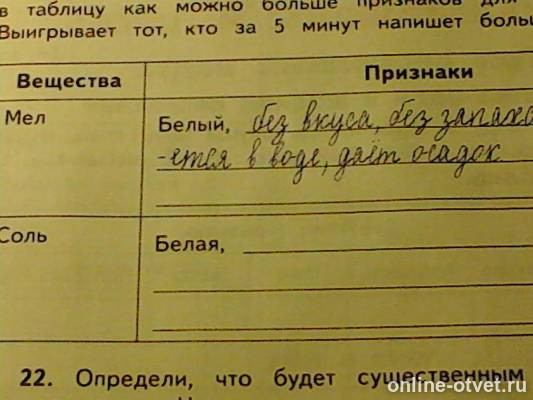 в таблицу как можно больше признаков для
Выигрывает тот, кто за 5 минут напишет боль
Вещества
Признаки
Мел
Белый, без вкуса, без запаха
-ется в воде, даёт осадок
Соль
Белая,
22. Определи, что будет существенным
online-otvet.ru